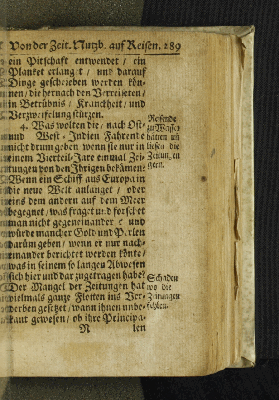 Von der Zeit. Nutzb. auf Reisen. 289
ein Pitschaft entwendet / ein
Planket erlangt / und darauf
Dinge geschrieben werden kön-
nen / die hernach den Verreiseten /
in Betrübnis / Kranckheit / und
Verzweifelung stürzen.
4. Was wolten die / nach Ost-
und West-Indien Fahrende
nicht drum geben wenn sie nur in
einem Vierteil-Jare einmal Zei-
tungen von den Ihrigen bekämen?
Wenn ein Schiff aus Europa in
die neue Welt anlanget / oder
eins dem andern auf dem Meer
begegnet / was fraget und forschet
man nicht gegeneinander? und
würde mancher Gold und Perlen
darüm geben / wenn er nur nach-
einander berichtet werden könte /
was in seinem so langen Abwesen
sich hier und dar zugetragen habe?
Der Mangel der Zeitungen hat
vielmals ganze Flotten ins Ver-
derben gesetzet / wann ihnen unbe-
kant gewesen / ob ihre Principa-
N len
Reisende
zu Wasser
hätten
Zeitungen
gern.
Schaden
wo die
Zeitungen
fehlen.